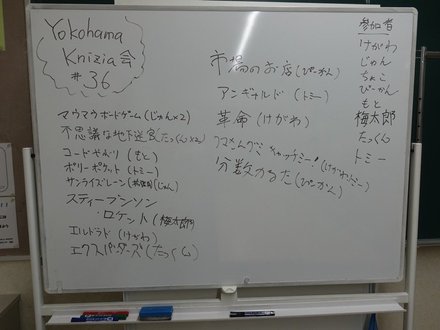 Yokohama
Knizia会
#36
マウマウボードゲーム(じゃん×2)
不思議な地下迷宮(たっくん×2)
コードやぶり(もと)
ポリーポケット(トミー)
サンライズレーン(じゅん)
スティーブンソン
・ロケット(梅太郎)
エルドラド(けがわ)
エクスパンダーズ(たっくん)
市場のお店(ぴーかん)
アンギャルド(トミー)
革命(けがわ)
キャッチミー!(けがわ・トミー)
分数かるた(ぴーかん)
参加者
けがわ
じゅん
ちょこ
ぴーかん
もと
梅太郎
たっくん
トミー